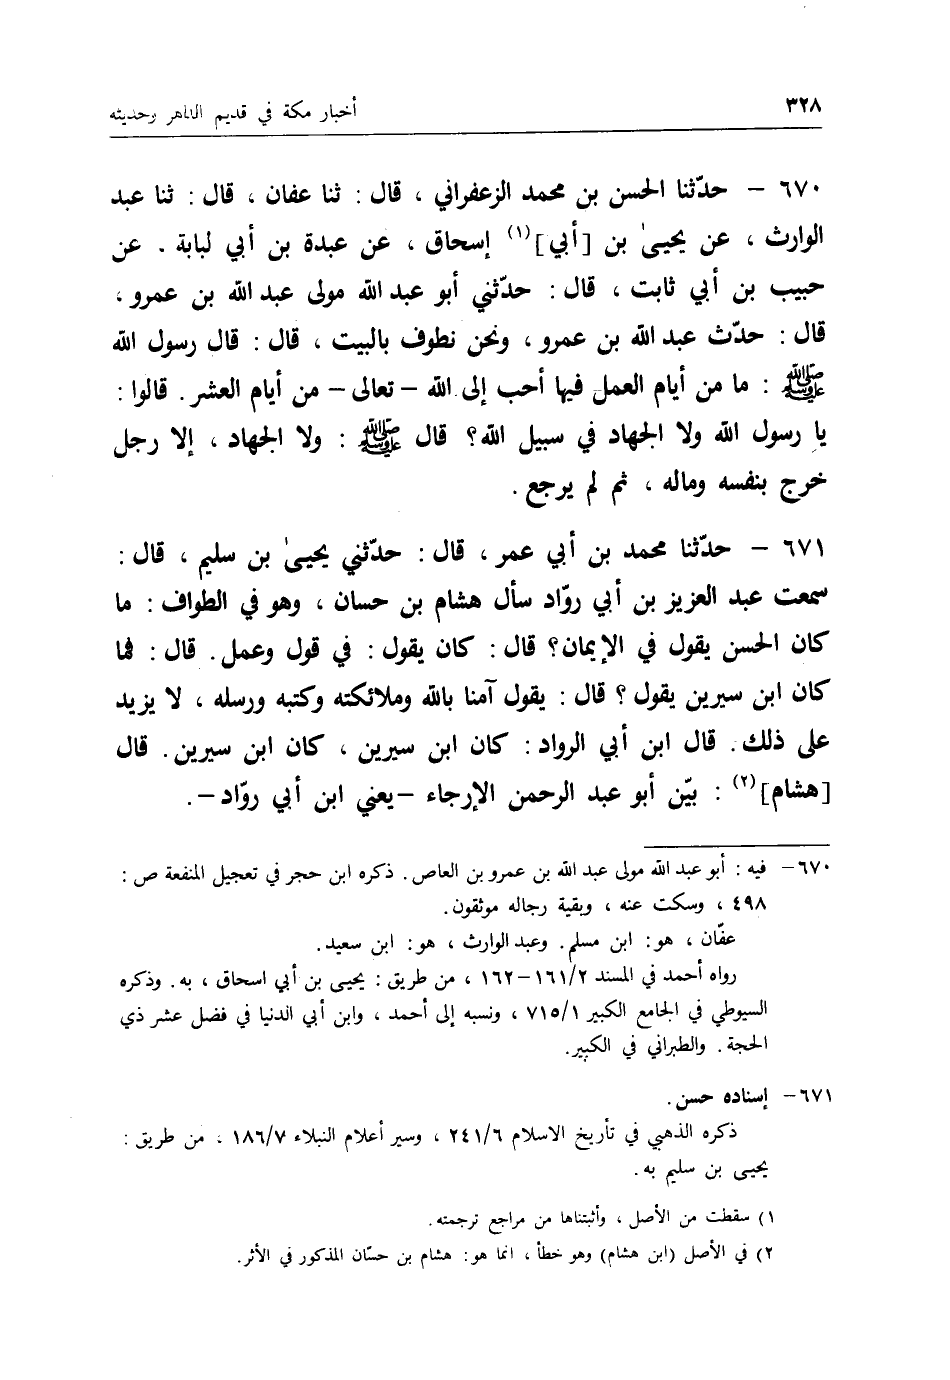 ٣٢٨ أخبار مكة في قديم الدهر وحديثه
٦٧٠ – حدّثنا الحسن بن محمد الزعفراني ، قال : ثنا عفان ، قال : ثنا عبد
الوارث ، عن يحيىٰ بن [أبي](١) إسحاق ، عن عبدة بن أبي لبابة . عن
حبيب بن أبي ثابت ، قال : حدّثني أبو عبد الله مولى عبد الله بن عمرو ،
قال : حدّث عبد الله بن عمرو ، ونحن نطوف بالبيت ، قال : قال رسول الله
ﷺ : ما من أيام العمل فيها أحب إلى الله – تعالى – من أيام العشر . قالوا :
يا رسول الله ولا الجهاد في سبيل الله؟ قال ﷺ : ولا الجهاد ، إلا رجل
خرج بنفسه وماله ، ثم لم يرجع .
٦٧١ – حدّثنا محمد بن أبي عمر ، قال : حدّثني يحيىٰ بن سليم ، قال :
سمعت عبد العزيز بن أبي روّاد سأل هشام بن حسان ، وهو في الطواف : ما
كان الحسن يقول في الإيمان؟ قال : كان يقول : في قول وعمل . قال : فما
كان ابن سيرين يقول ؟ قال : يقول آمنا بالله وملائكته وكتبه ورسله ، لا يزيد
على ذلك . قال ابن أبي الرواد : كان ابن سيرين ، كان ابن سيرين . قال
[هشام](٢) : بيّن أبو عبد الرحمن الإرجاء – يعني ابن أبي روّاد – .
٦٧٠ – فيه : أبو عبد الله مولى عبد الله بن عمرو بن العاص . ذكره ابن حجر في تعجيل المنفعة ص :
٤٩٨ ، وسكت عنه ، وبقية رجاله موثقون .
عفّان ، هو : ابن مسلم . وعبد الوارث ، هو : ابن سعيد .
رواه أحمد في المسند ١٦١/٢–١٦٢ ، من طريق : يحيى بن أبي اسحاق ، به . وذكره
السيوطي في الجامع الكبير ٧١٥/١ ، ونسبه إلى أحمد ، وابن أبي الدنيا في فضل عشر ذي
الحجة . والطبراني في الكبير .
٦٧١ – إسناده حسن .
ذكره الذهبي في تأريخ الاسلام ٢٤١/٦ ، وسير أعلام النبلاء ١٨٦/٧ ، من طريق :
يحيى بن سليم به .
١) سقطت من الأصل ، وأثبتناها من مراجع ترجمته .
٢) في الأصل (ابن هشام) وهو خطأ ، انما هو : هشام بن حسّان المذكور في الأثر .